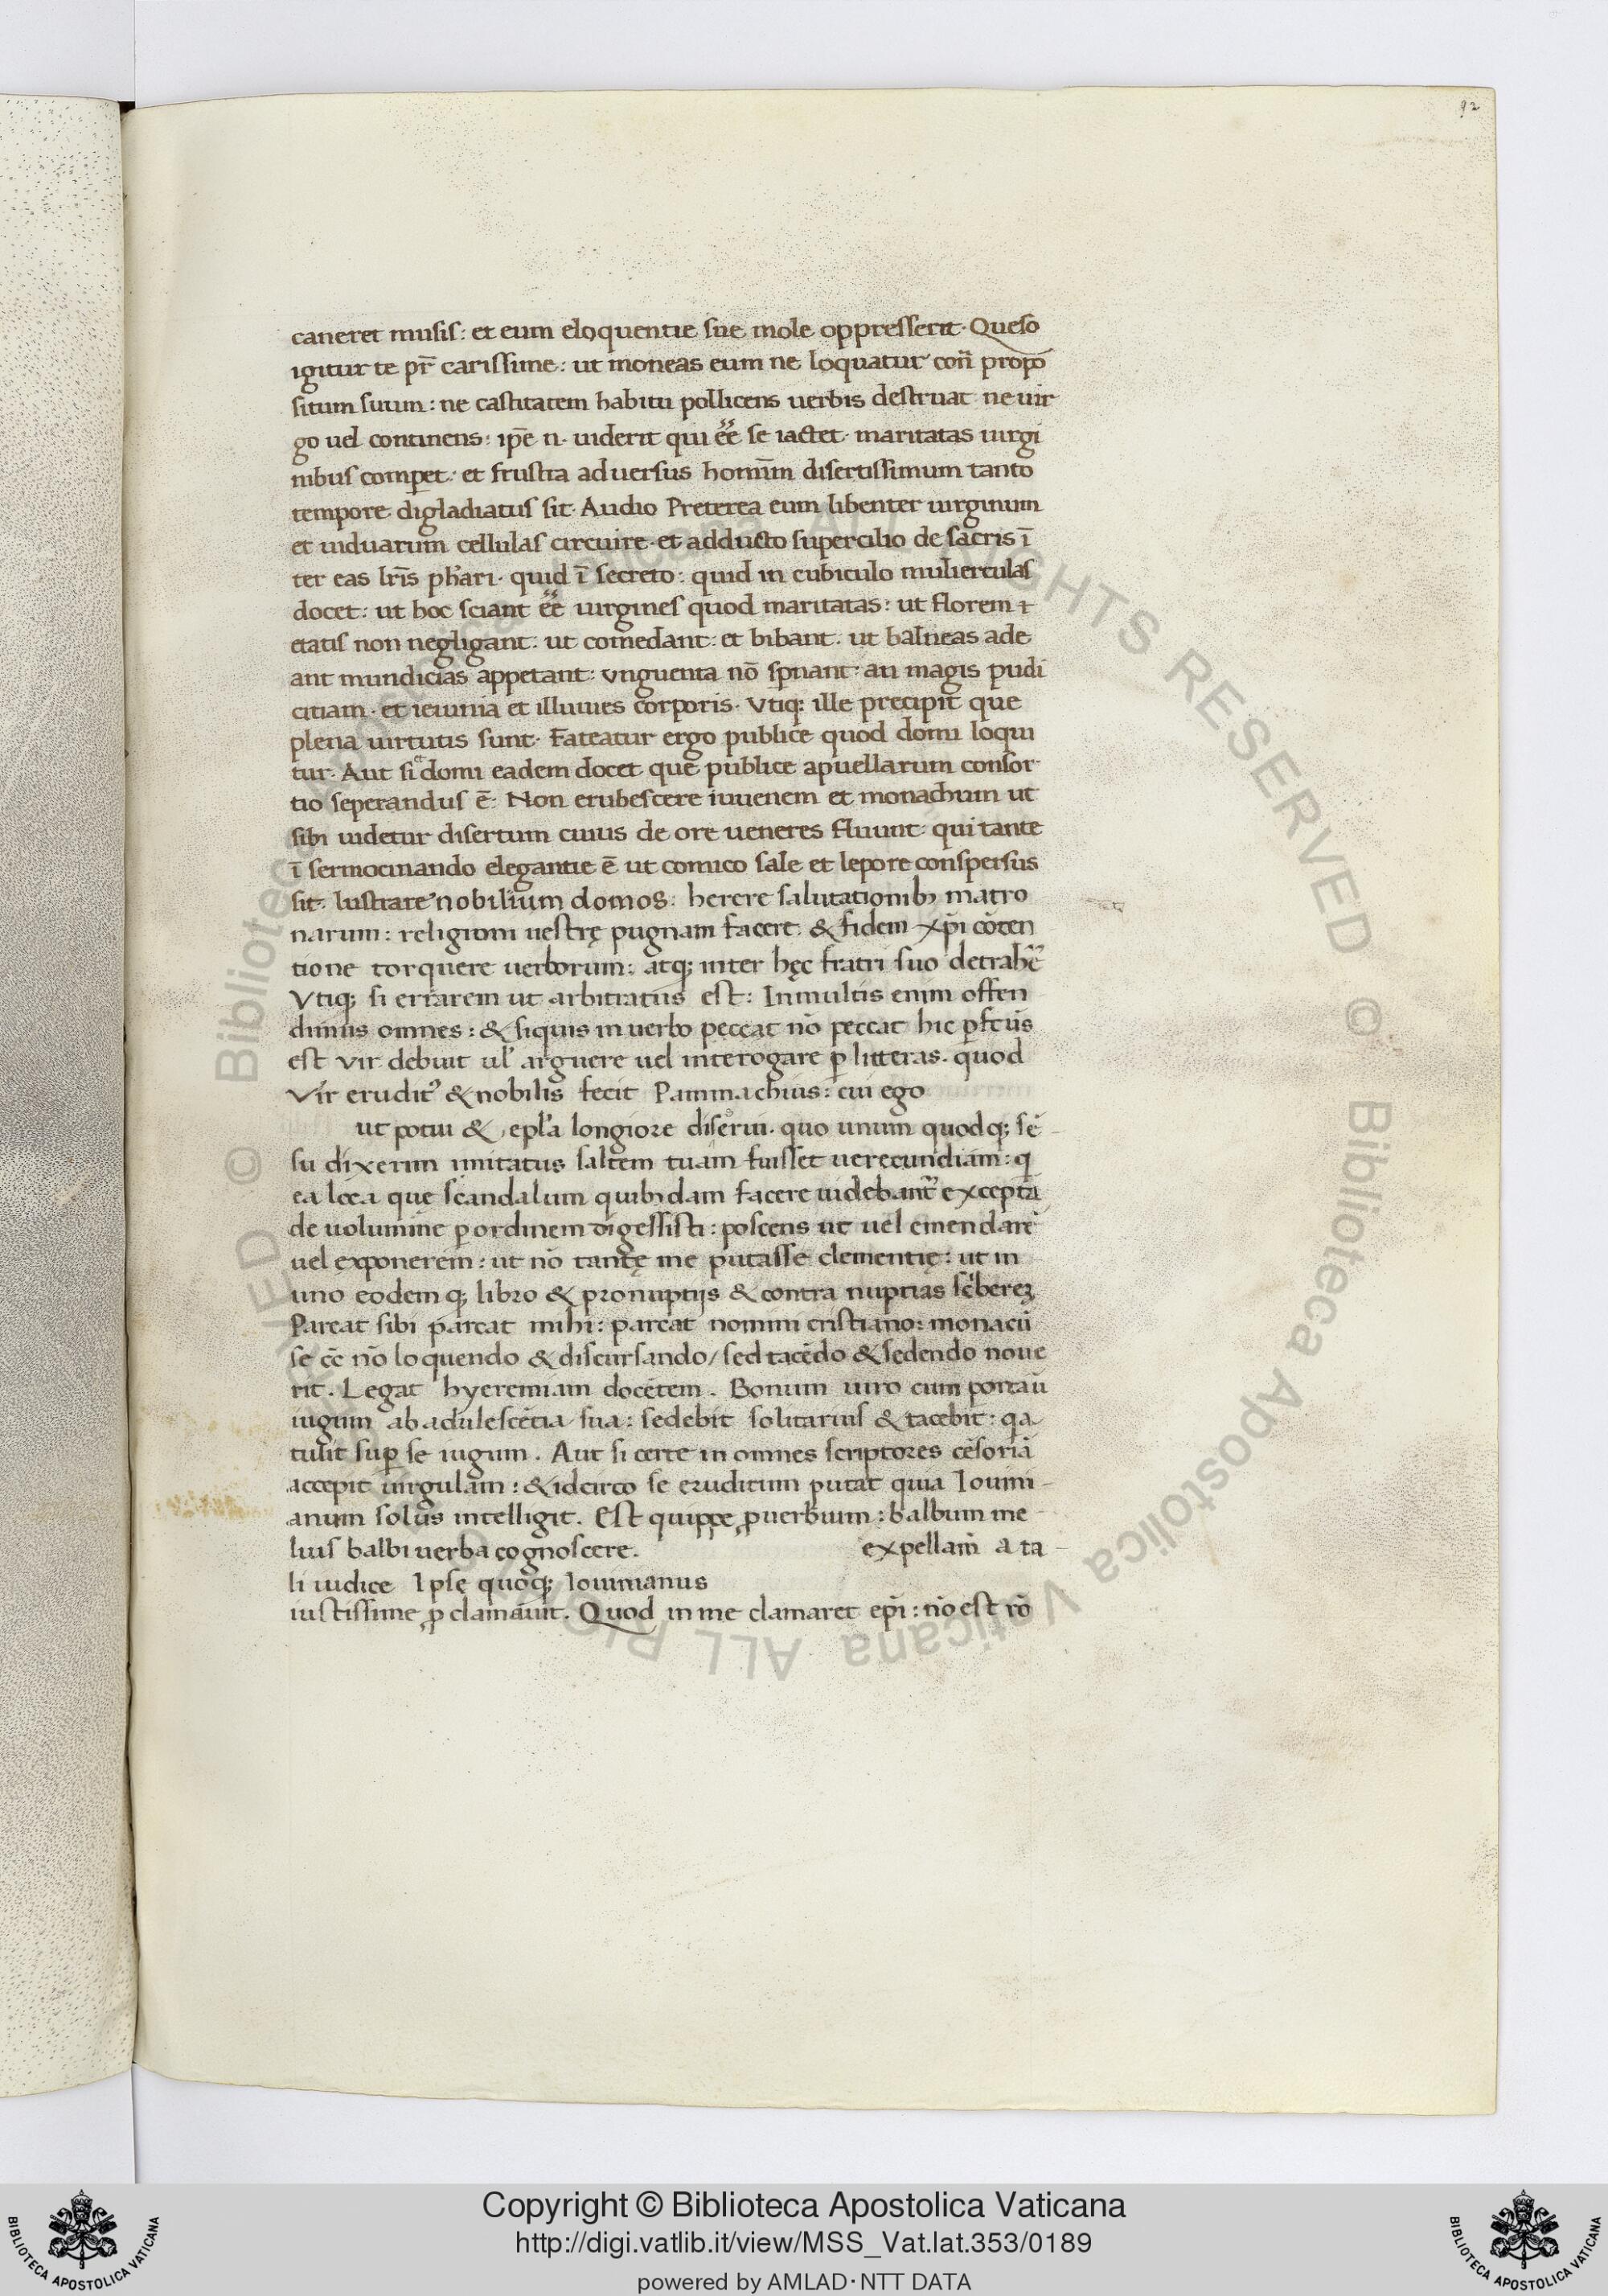 92
caneret musis: et eum eloquentie sue mole oppresserit. Queso
igitur te pr̄ carissime: ut moneas eum ne loquatur con̄ propo
situm suum: ne castitatem habitu pollicens uerbis destruat ne uir
go uel continens: ip̄e n. uiderit qui ēe se iactet. maritatas uirgi
nibus comꝑet. et frustra aduersus homin̄m disertissimum tanto
tempore digladiatus sit. Audio Preterea eum libenter uirginum
et uiduarum cellulas circuire. et adducto supercilio de sacris ī
ter eas lr̄is ph̄ari. quid ī secreto: quid in cubiculo mulierculas
docet: ut hoc sciant ēe uirgines quod maritatas: ut florem
etatis non negligant. ut comedant: et bibant. ut balneas ade
ant mundicias appetant: unguenta nō sꝑnant: an magis pudi
citiam. et ieiunia et illuuies corporis. Vtiq; ille precipit que
plena uirtutis sunt. Fateatur ergo publice quod domi loqui
tur. Aut si et domi eadem docet que publice apuellarum consor
tio seperandus ē. Non erubescere iuuenem et monachum ut
sibi uidetur disertum cuius de ore ueneres fluunt: qui tante
ī sermocinando elegantie ē ut comico sale et lepore conspersus
sit. lustrare nobilium domos: herere salutationib; matro
narum: religioni uestrę pugnam facere. & fidem xp̄i cōten
tione torquere uerborum: atq; inter hęc fratri suo detrahē
Vtiq; si errarem ut arbitratus est: Inmultis enim offen
dimus omnes: & siquis in uerbo peccat nō peccat hic ꝑfctūs
est vir debuit ul̄ arguere uel interogare ꝑ litteras. quod
Vir erudit᾽ & nobilis fecit Pammachius: cui ego
ut potui & epl̄a longiore diserui. quo unum quodq; sē
su dixerim imitatus saltem tuam fuisset uerecundiam: q
ea loca quę scandalum quib;dam facere uidebant᾽ excepta
de uolumine ꝑ ordinem digessisti: poscens ut uel emendarē
uel exponerem: ut nō tantę me putasse clementię: ut in
uno eodemq; libro & pronuptijs & contra nuptias sc̄berez
Parcat sibi parcat mihi: parcat nomini cristiano: monacū
se ēe nō loquendo & discursando/ sed tacēdo & sedendo noue
rit. Legat hyeremiam docētem. Bonum uiro cum portaū
iugum ab adulescētia sua: sedebit solitarius & tacebit: qa
tulit suꝑ se iugum. Aut si certe in omnes scriptores cēsoriā
accepit uirgulam: & idcirco se eruditum putat quia Iouini
anum solus intelligit. Est quippe ꝓuerbium: balbum me
lius balbi uerba cognoscere. expellam̄ a ta
li iudice Ipse quoq; Iouinianus
iustissime ꝓclamauit. Quod in me clamaret ep̄i: nō est rō
© Biblioteca Apostolica Vaticana ALL RIGHTS RESERVED
© Biblioteca Apostolica Vaticana ALL RIGHTS RESERVED
Copyright © Biblioteca Apostolica Vaticana
http://digi.vatlib.it/view/MSS_Vat.lat.353/0189
powered by AMLAD·NTT DATA
BIBLIOTECA APOSTOLICA VATICANA
BIBLIOTECA APOSTOLICA VATICANA